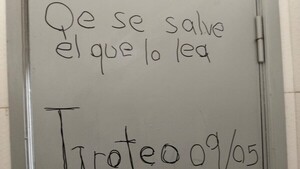 Qe se salve
el que lo lea
Tiroteo 09/05